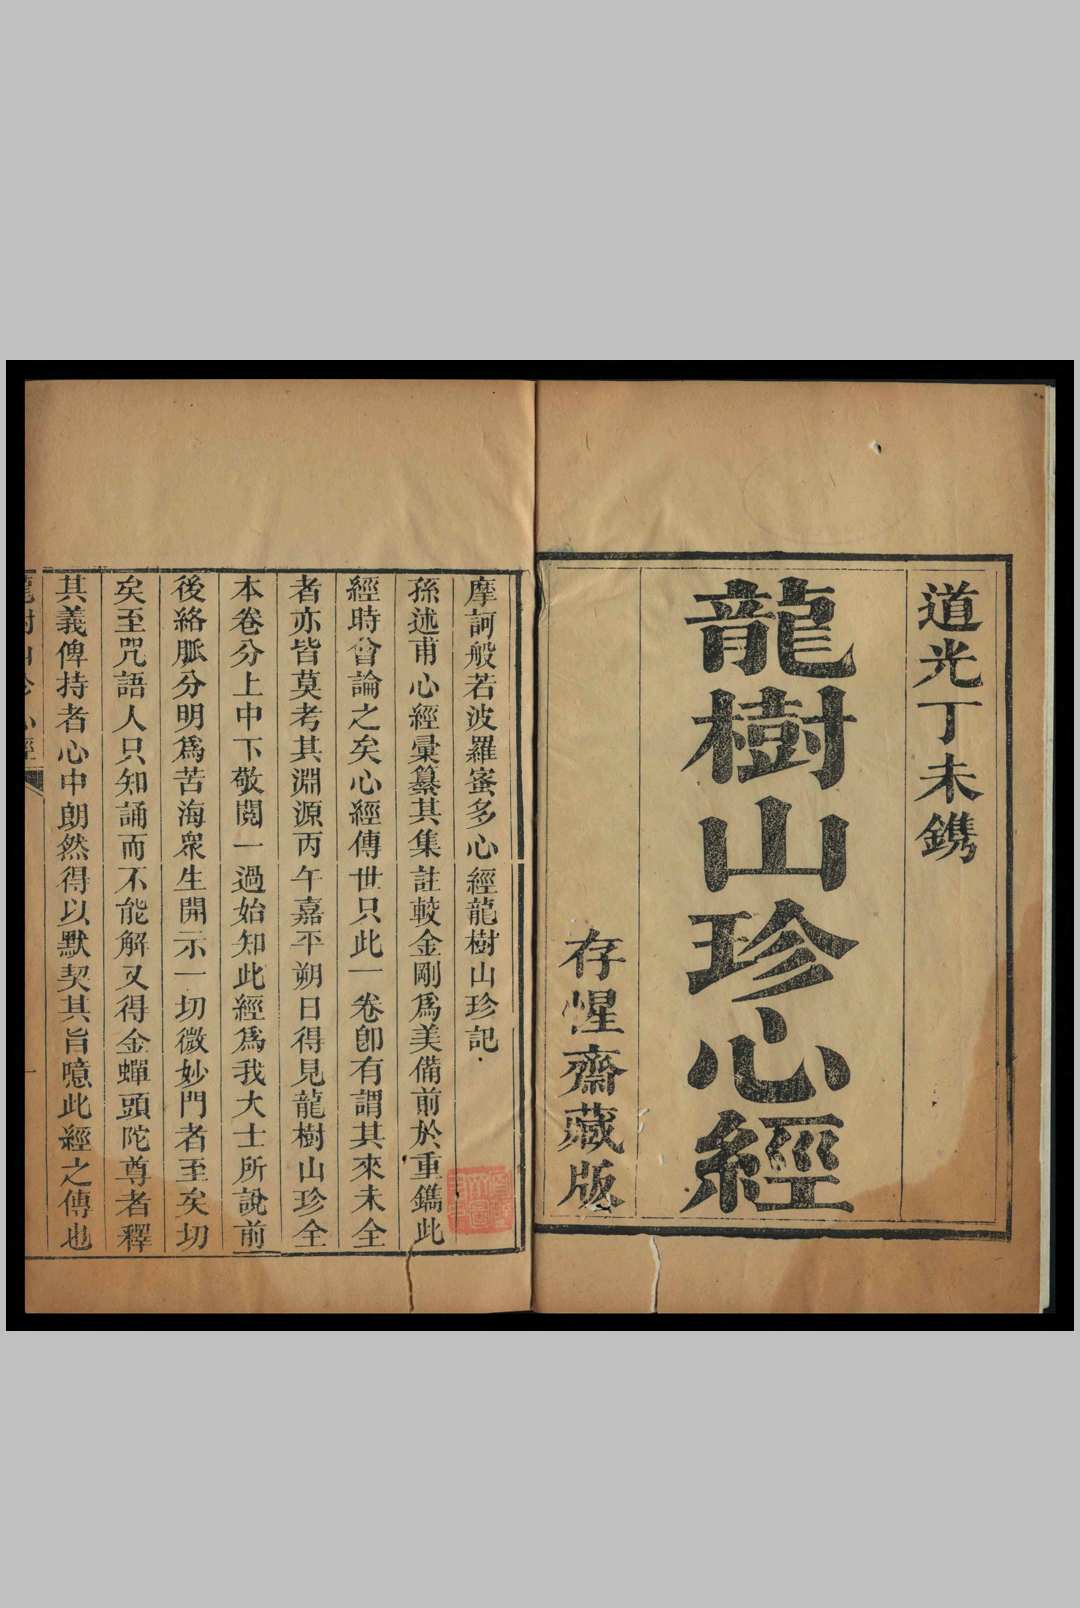 道光丁未鐫
龍樹山珍心經
存惺齋藏版
摩訶般若波羅蜜多心經龍樹山珍記
孫述甫心經彙纂其集註較金剛爲美備前於重鐫此
經時曾論之矣心經傳世只此一卷卽有謂其來未全
者亦皆莫考其淵源丙午嘉平朔日得見龍樹山珍全
本卷分上中下敬閱一過始知此經爲我大士所說前
後絡脈分明爲苦海衆生開示一切微妙門者至矣切
矣至咒語人只知誦而不能解又得金蟬頭陀尊者釋
其義俾持者心中朗然得以默契其旨噫此經之傳也
龍樹山珍心經
一